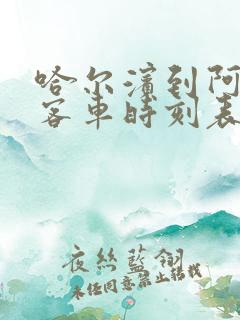 哈尔滨到阿
客车时刻表
夜丝蓝翎
未经同意禁止转载